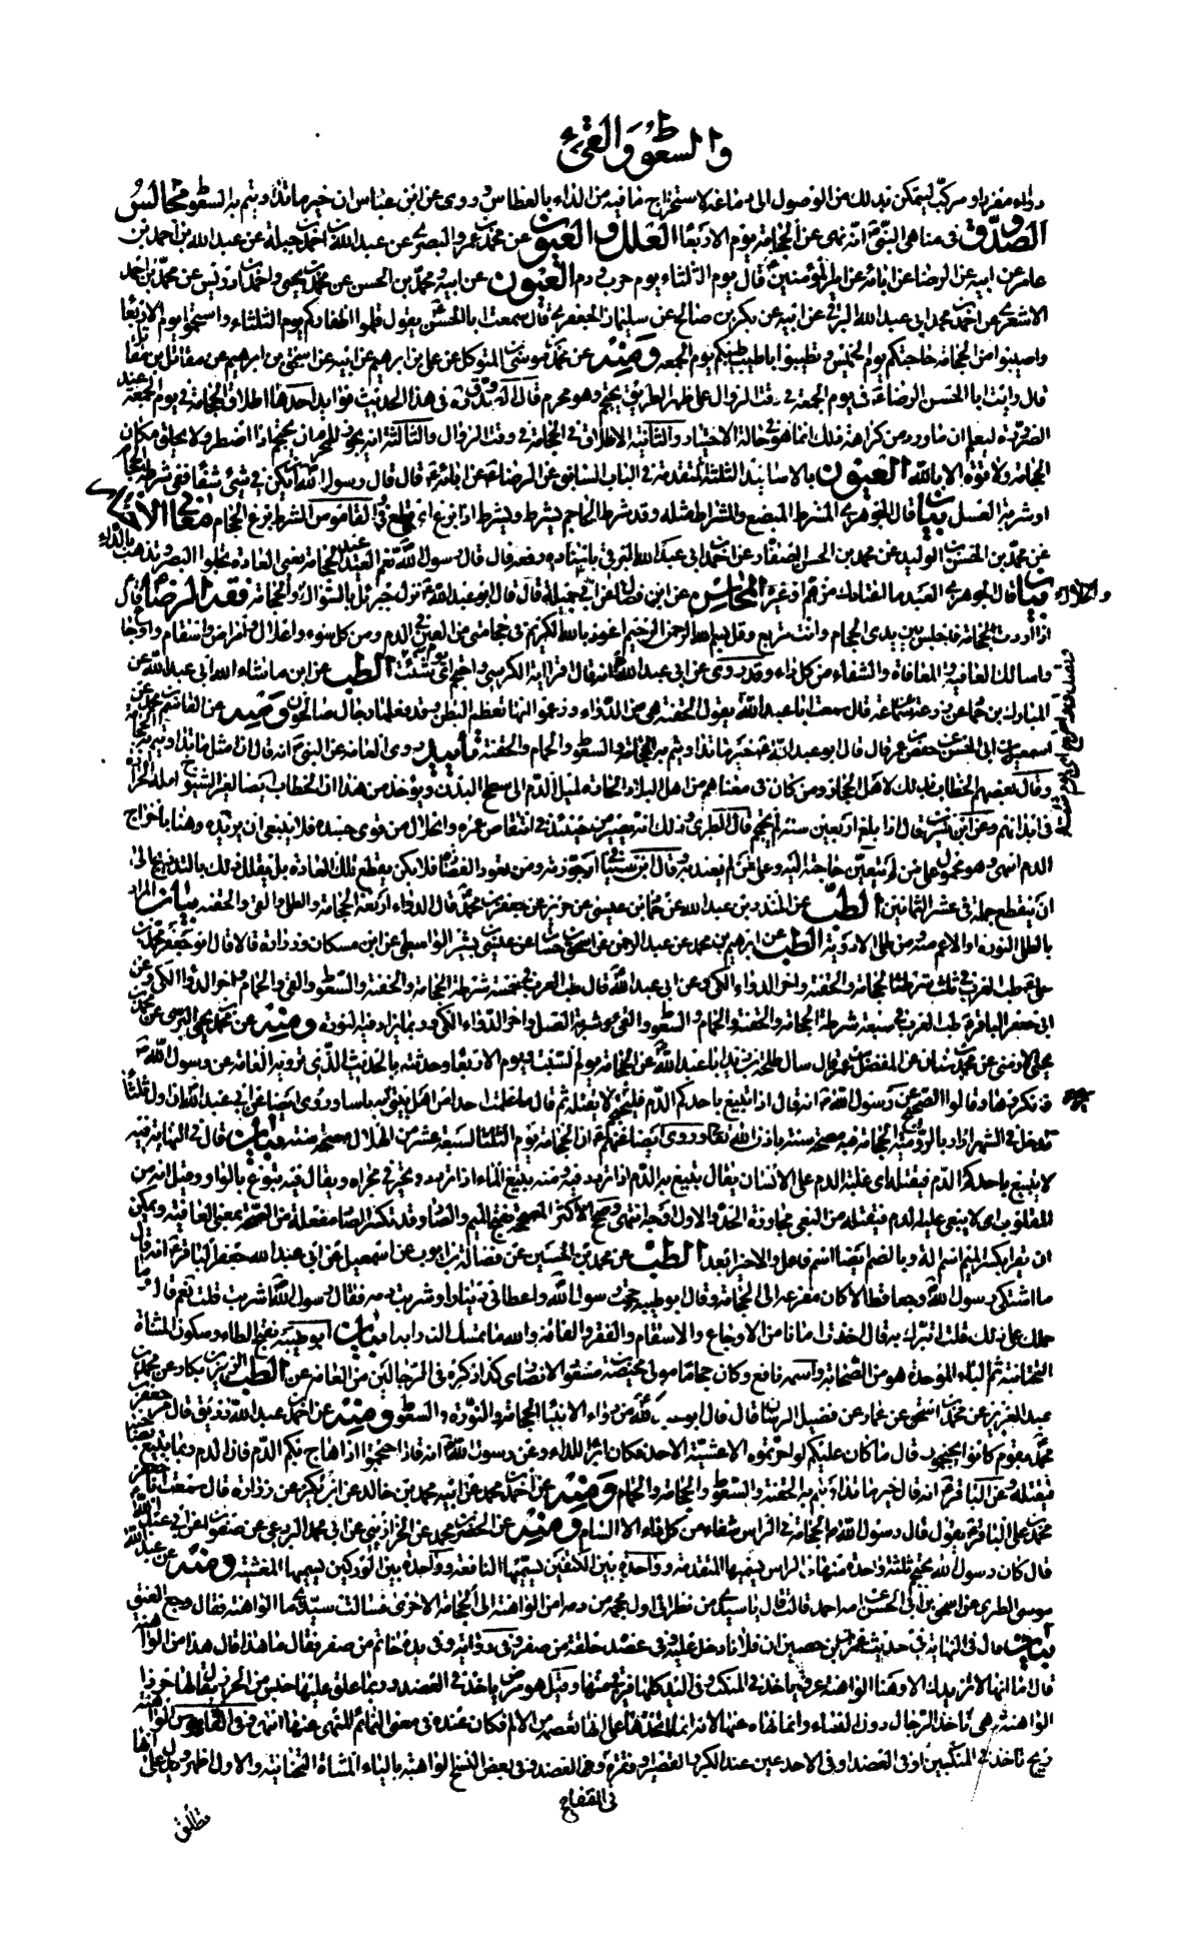 والسعوط والقيء
دواء مفرد او مركب ليتمكن بذلك من الوصول الى دماغه لاستخراج ما فيه من الداء بالعطاس وروى عن ابن عباس ان خير ما تداويتم به السعوط مجالس
الصدوق فى مناهى النبى انه نهى عن الحجامة يوم الاربعا العلل والعيون عن محمد بن عمرو البصرى عن عبدالله بن احمد بن جبلة عن عبد الله بن احمد بن
عامر عن ابيه عن الرضا عن ابائه عن امير المؤمنين قال يوم الثلثاء يوم حرب ودم العيون عن ابيه ومحمد بن الحسن عن محمد بن يحيى واحمد بن ادريس عن محمد بن احمد
الاشعرى عن احمد بن محمد ابى عبد الله البرقى عن ابيه عن بكر بن صالح عن سليمان الجعفرى قال سمعت ابا الحسن يقول قلموا اظفاركم يوم الثلثاء واستحموا يوم الاربعا
واصيبوا من الحجامة حاجتكم يوم الخميس وتطيبوا باطيب طيبكم يوم الجمعة ومنه عن محمد بن موسى بن المتوكل عن على بن ابرهيم عن ابيه عن اسحق بن ابرهيم عن مقاتل بن مقاتل
قال رايت ابا الحسن الرضا فى يوم الجمعة فى وقت الزوال على ظهر الطريق يحتجم وهو محرم قال الصدوق فى هذا الحديث فوائد احدها اطلاق الحجامة فى يوم الجمعة عند
الضرورة ليعلم ان ما ورد من كراهة ذلك انما هو فى حالة الاختيار والثانية الاطلاق فى الحجامة فى وقت الزوال والثالثة انه يجوز للمحرم ان يحتجم اذا اضطر ولا يحلق مكان
الحجامة ولا قوة الا بالله العيون بالاسانيد الثلثة المتقدمة فى الباب السابق عن الرضا عن ابائه قال قال رسول الله ان يكن فى شئ شفاء ففى شرطة حجام
او شربة العسل بيان قال الجوهرى المشرط المبضع والمشراط مثله وقد شرط الحاجم يشرط ويشرط اذا بزغ اى قطع وفى القاموس الشرط بزغ الحجام معانى الاخبار
عن محمد بن الحسن بن الوليد عن محمد بن الحسن الصفار عن احمد بن ابى عبد الله البرقى باسناده رفعه قال قال رسول الله نعم العيد الحجامة يعنى العادة تجلو البصر وتذهب بالداء
بيان قال الجوهرى العيد ما اعتادك من هم او غيره المجالس عن ابن فضال عن ابى جميلة قال قال ابو عبد الله نزل جبرئيل بالسواك والحجامة فقه الرضا قال
اذا اردت الحجامة فاجلس بين يدى الحجام وانت متربع وقل بسم الله الرحمن الرحيم اعوذ بالله الكريم فى حجامتى من العين فى الدم ومن كل سوء واعلال وامراض واسقام واوجاع
واسالك العافية والمعافاة والشفاء من كل داء وقد روى عن ابى عبد الله انه قال اقرا اية الكرسى واحتجم اى يوم شئت الطب عن ابن ما شاء الله ابى عبد الله عن
المبارك بن حماد عن زرعة عن سماعة قال سمعت ابا عبد الله يقول الحقنة هى من الدواء وزعموا انها تعظم البطن وقد فعلها رجال صالحون ومنه عن القاسم بن محمد عن
اسمعيل بن ابى الحسن عن حفص بن عمر قال قال ابو عبد الله خير ما تداويتم به الحجامة والسعوط والحمام والحقنة تأييد روى العامة عن النبى انه قال ان امثل ما تداويتم به الحجامة
وقال بعضهم الخطاب بذلك لاهل الحجاز ومن كان فى معناهم من اهل البلاد الحارة لميل الدم الى سطح البدن ويؤخذ من هذا ان الخطاب ايضا لغير الشيوخ لقلة الحرارة
فى ابدانهم وعن ابن سيرين قال اذا بلغ اربعين سنة لم يحتجم قال الطبرى وذلك انه يصير من حينئذ فى انتقاص من عمره وانحلال من قوى جسده فلا ينبغى ان يزيده وهنا باخراج
الدم انتهى وهو محمول على من لم يتعين حاجته اليه وعلى من لم يعتد به وقال ابن سينا فى ارجوزته ومن تعود الفصد فلا يكن يقطع تلك العادة بل يقلل ذلك بالتدريج الى
ان ينقطع جملة فى عشر الثمانين الطب عن المنذر بن عبد الله عن حماد بن عيسى عن حريز عن جعفر بن محمد قال الدواء اربعة الحجامة والطلى والقى والحقنة بيان المراد
بالطلى النورة او الاعم منه ومن طلى الادوية الطب عن ابرهيم بن محمد عن عبد الرحمن عن اسحق بن حسان عن عيسى بن بشير الواسطى عن ابن مسكان وزرارة قالا قال ابو جعفر محمد بن
على طب العرب فى ثلث شرطة الحجامة والحقنة واخر الدواء الكى وعن ابى عبد الله قال طب العرب فى خمسة شرطة الحجامة والحقنة والسعوط والقى والحمام واخر الدواء الكى وعن
ابى جعفر الباقر طب العرب فى سبعة شرطة الحجامة والحقنة والحمام والسعوط والقى وشربة العسل واخر الدواء الكى وربما يزاد فيه النورة ومنه عن محمد بن يحيى البرسى عن محمد بن
يحيى الارمنى عن محمد بن سنان عن المفضل بن عمر قال سال طلحة بن زيد ابا عبد الله عن الحجامة يوم السبت ويوم الاربعا وحدثته بالحديث الذى ترويه العامة عن رسول الله
فانكره وقالوا الصحيح عن رسول الله انه قال اذا تبيغ باحدكم الدم فليحتجم لا يقتله ثم قال ما علمت احدا من اهل بيتى يرى به باسا وروى ايضا عن ابى عبد الله ان اول ثلثاء
تدخل فى الشهر اذار بالرومية الحجامة فيه مصحة سنة باذن الله تعالى وروى ايضا عنهم ان الحجامة يوم الثلثا لسبعة عشر من الهلال مصحة سنة بيان قال فى النهاية فيه
لا يتبيغ باحدكم الدم فيقتله اى غلبة الدم على الانسان يقال تبيغ به الدم اذا تردد فيه ومنه تبيغ الماء اذا تردد وتحير فى مجراه ويقال فيه تبوغ بالواو وقيل انه من
المقلوب اى لا يبغى عليه الدم فيقتله من البغى مجاوزة الحد والاول اوجه انتهى وصحح الاكثر المصحة بفتح الميم والصاد وقد تكسر الصاد مفعلة من الصحة بمعنى العافية ويمكن
ان يقرا بكسر الميم اسم الة وبالضم ايضا اسم فاعل والاخير ابعد الطب عن محمد بن الحسين عن فضالة بن ايوب عن اسمعيل عن ابى عبد الله جعفر الباقر انه قال
ما اشتكى رسول الله وجعا قط الا كان مفزعه الى الحجامة وقال ابو طيبة حجمت رسول الله واعطانى دينارا وشربت دمه فقال رسول الله اشربت قلت نعم قال وما
حملك على ذلك قلت اتبرك به قال اخذت امانا من الاوجاع والاسقام والفقر والفاقة والله ما تمسك النار ابدا بيان ابو طيبة بفتح الطاء وسكون المثناة
التحتانية ثم الباء الموحدة هو من الصحابة واسمه نافع وكان حجاما مولى محيصة بن مسعود الانصارى كذا ذكره فى الرجالين من العامة الطب عن الزبير بن بكار عن محمد بن
عبد العزيز عن محمد بن اسحق عن عمار عن فضيل الرسان قال قال ابو عبد الله من دواء الانبيا الحجامة والنورة والسعوط ومنه عن احمد بن عبد الله بن زريق قال مر جعفر بن
محمد بقوم كانوا يحتجمون قال ما كان عليكم لو اخرتموه الا عشية الاحد فكان ابرأ للداء وعن رسول الله انه قال احتجموا اذا هاج بكم الدم فان الدم ربما تبيغ بصاحبه
فيقتله وعن الباقر انه قال خير ما تداويتم به الحقنة والسعوط والحجامة والحمام ومنه عن احمد بن محمد عن ابيه محمد بن خالد عن ابن بكير عن زرارة قال سمعت ابا جعفر
محمد بن على الباقر يقول قال رسول الله الحجامة فى الراس شفاء من كل داء الا السام ومنه عن الخضر بن محمد عن الخرازينى عن ابى محمد البردعى عن صفوان عن ابى عبد الله
قال كان رسول الله يحتجم ثلثة واحدة منها فى الراس يسميها المتقدمة وواحدة بين الكتفين يسميها النافعة وواحدة بين الوركين يسميها المغيثة ومنه عن عبد الله بن
موسى الطبرى عن اسحق بن ابى الحسن عن امه ام احمد قالت قال سيدى من نظر الى اول محجمة من دمه امن الواهنة الى الحجامة الاخرى فسالت سيدى ما الواهنة فقال وجع العنق
بيان قال فى النهاية فى حديث عمران بن حصين ان فلانا دخل عليه وفى عضده حلقة من صفر وفى رواية وفى يده خاتم من صفر فقال ما هذا قال هذا من الواهنة
قال اما انها لا تزيدك الا وهنا الواهنة عرق ياخذ فى المنكب وفى اليد كلها فيرقى منها وقيل هو مرض ياخذ فى العضد وربما علق عليها جنس من الخرز يقال لها خرز
الواهنة وهى تاخذ الرجال دون النساء وانما نهاه عنها لانه انما اتخذها على انها تعصمه من الالم فكان عنده فى معنى التمائم المنهى عنها انتهى وفى القاموس الواهنة
ريح تاخذ فى المنكبين او فى العضد او فى الاخدعين عند الكبر والقصيرى وفقرة فى القفا والعضد وفى بعض النسخ الواهية بالياء المثناة التحتانية والاول اظهر
فى القفا